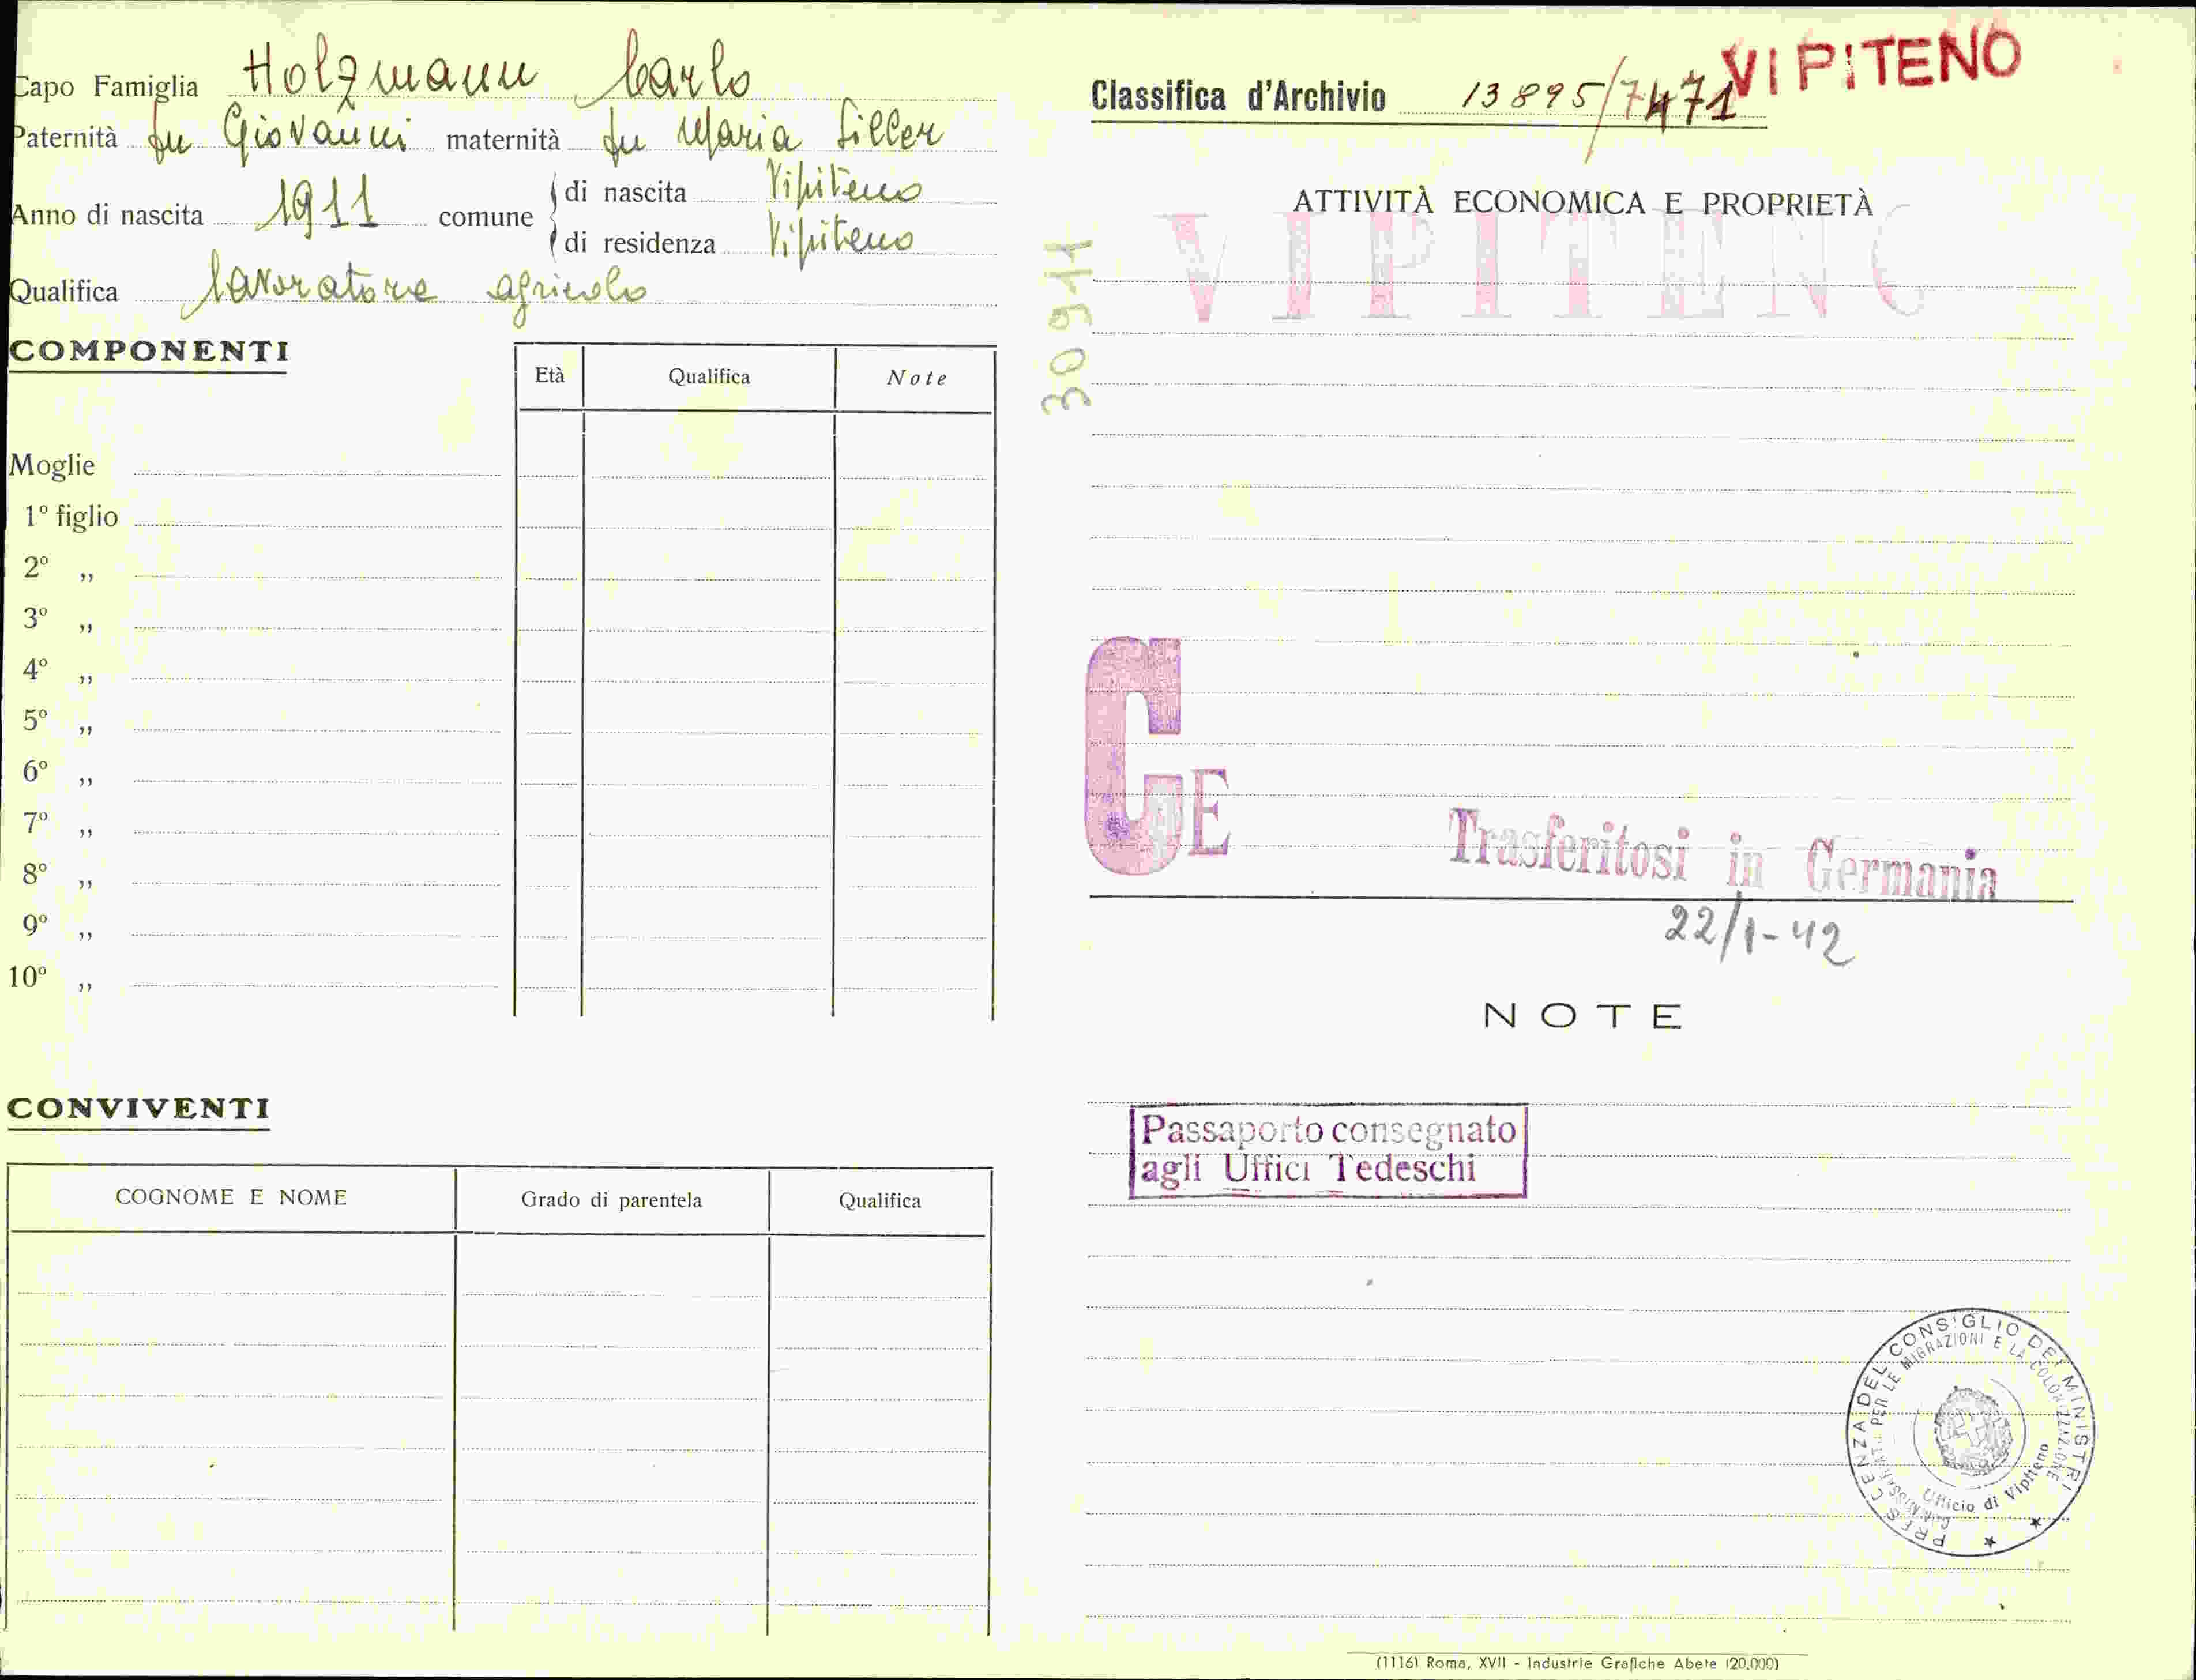 Capo Famiglia Holzmann Carlo
Paternità fu Giovanni maternità fu Maria Siller
Anno di nascita 1911 comune
di nascita Vipiteno
di residenza Vipiteno
Qualifica lavoratore agricolo
COMPONENTI
Età Qualifica Note
Moglie
1º figlio
2º „
3º „
4º „
5º „
6º „
7º „
8º „
9º „
10º „
CONVIVENTI
COGNOME E NOME Grado di parentela Qualifica
30911
Classifica d'Archivio 13895/7471 VIPITENO
ATTIVITÀ ECONOMICA E PROPRIETÀ
VIPITENO
C
E
Trasferitosi in Germania
22/1-42
NOTE
Passaporto consegnato
agli Uffici Tedeschi
PRESIDENZA DEL CONSIGLIO DEI MINISTRI
COMMISSARIATO PER LE MIGRAZIONI E LA COLONIZZAZIONE
Ufficio di Vipiteno
(11161 Roma, XVII - Industrie Grafiche Abete (20.000)